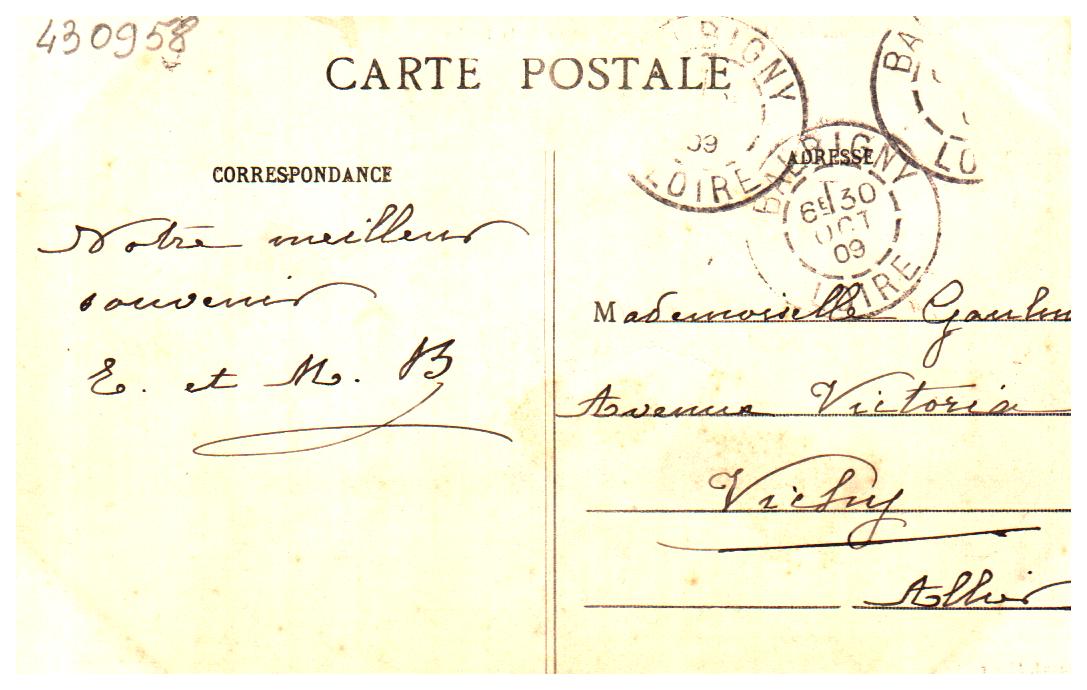 430958
CARTE POSTALE
BIGNY
09
LOIRE
BA
LO
CORRESPONDANCE
ADRESSE
BAUBIGNY
6E 30
OCT
09
LOIRE
Notre meilleur
souvenir
E. et M. B
Mademoiselle
Avenue Victoria
Vichy
Allier